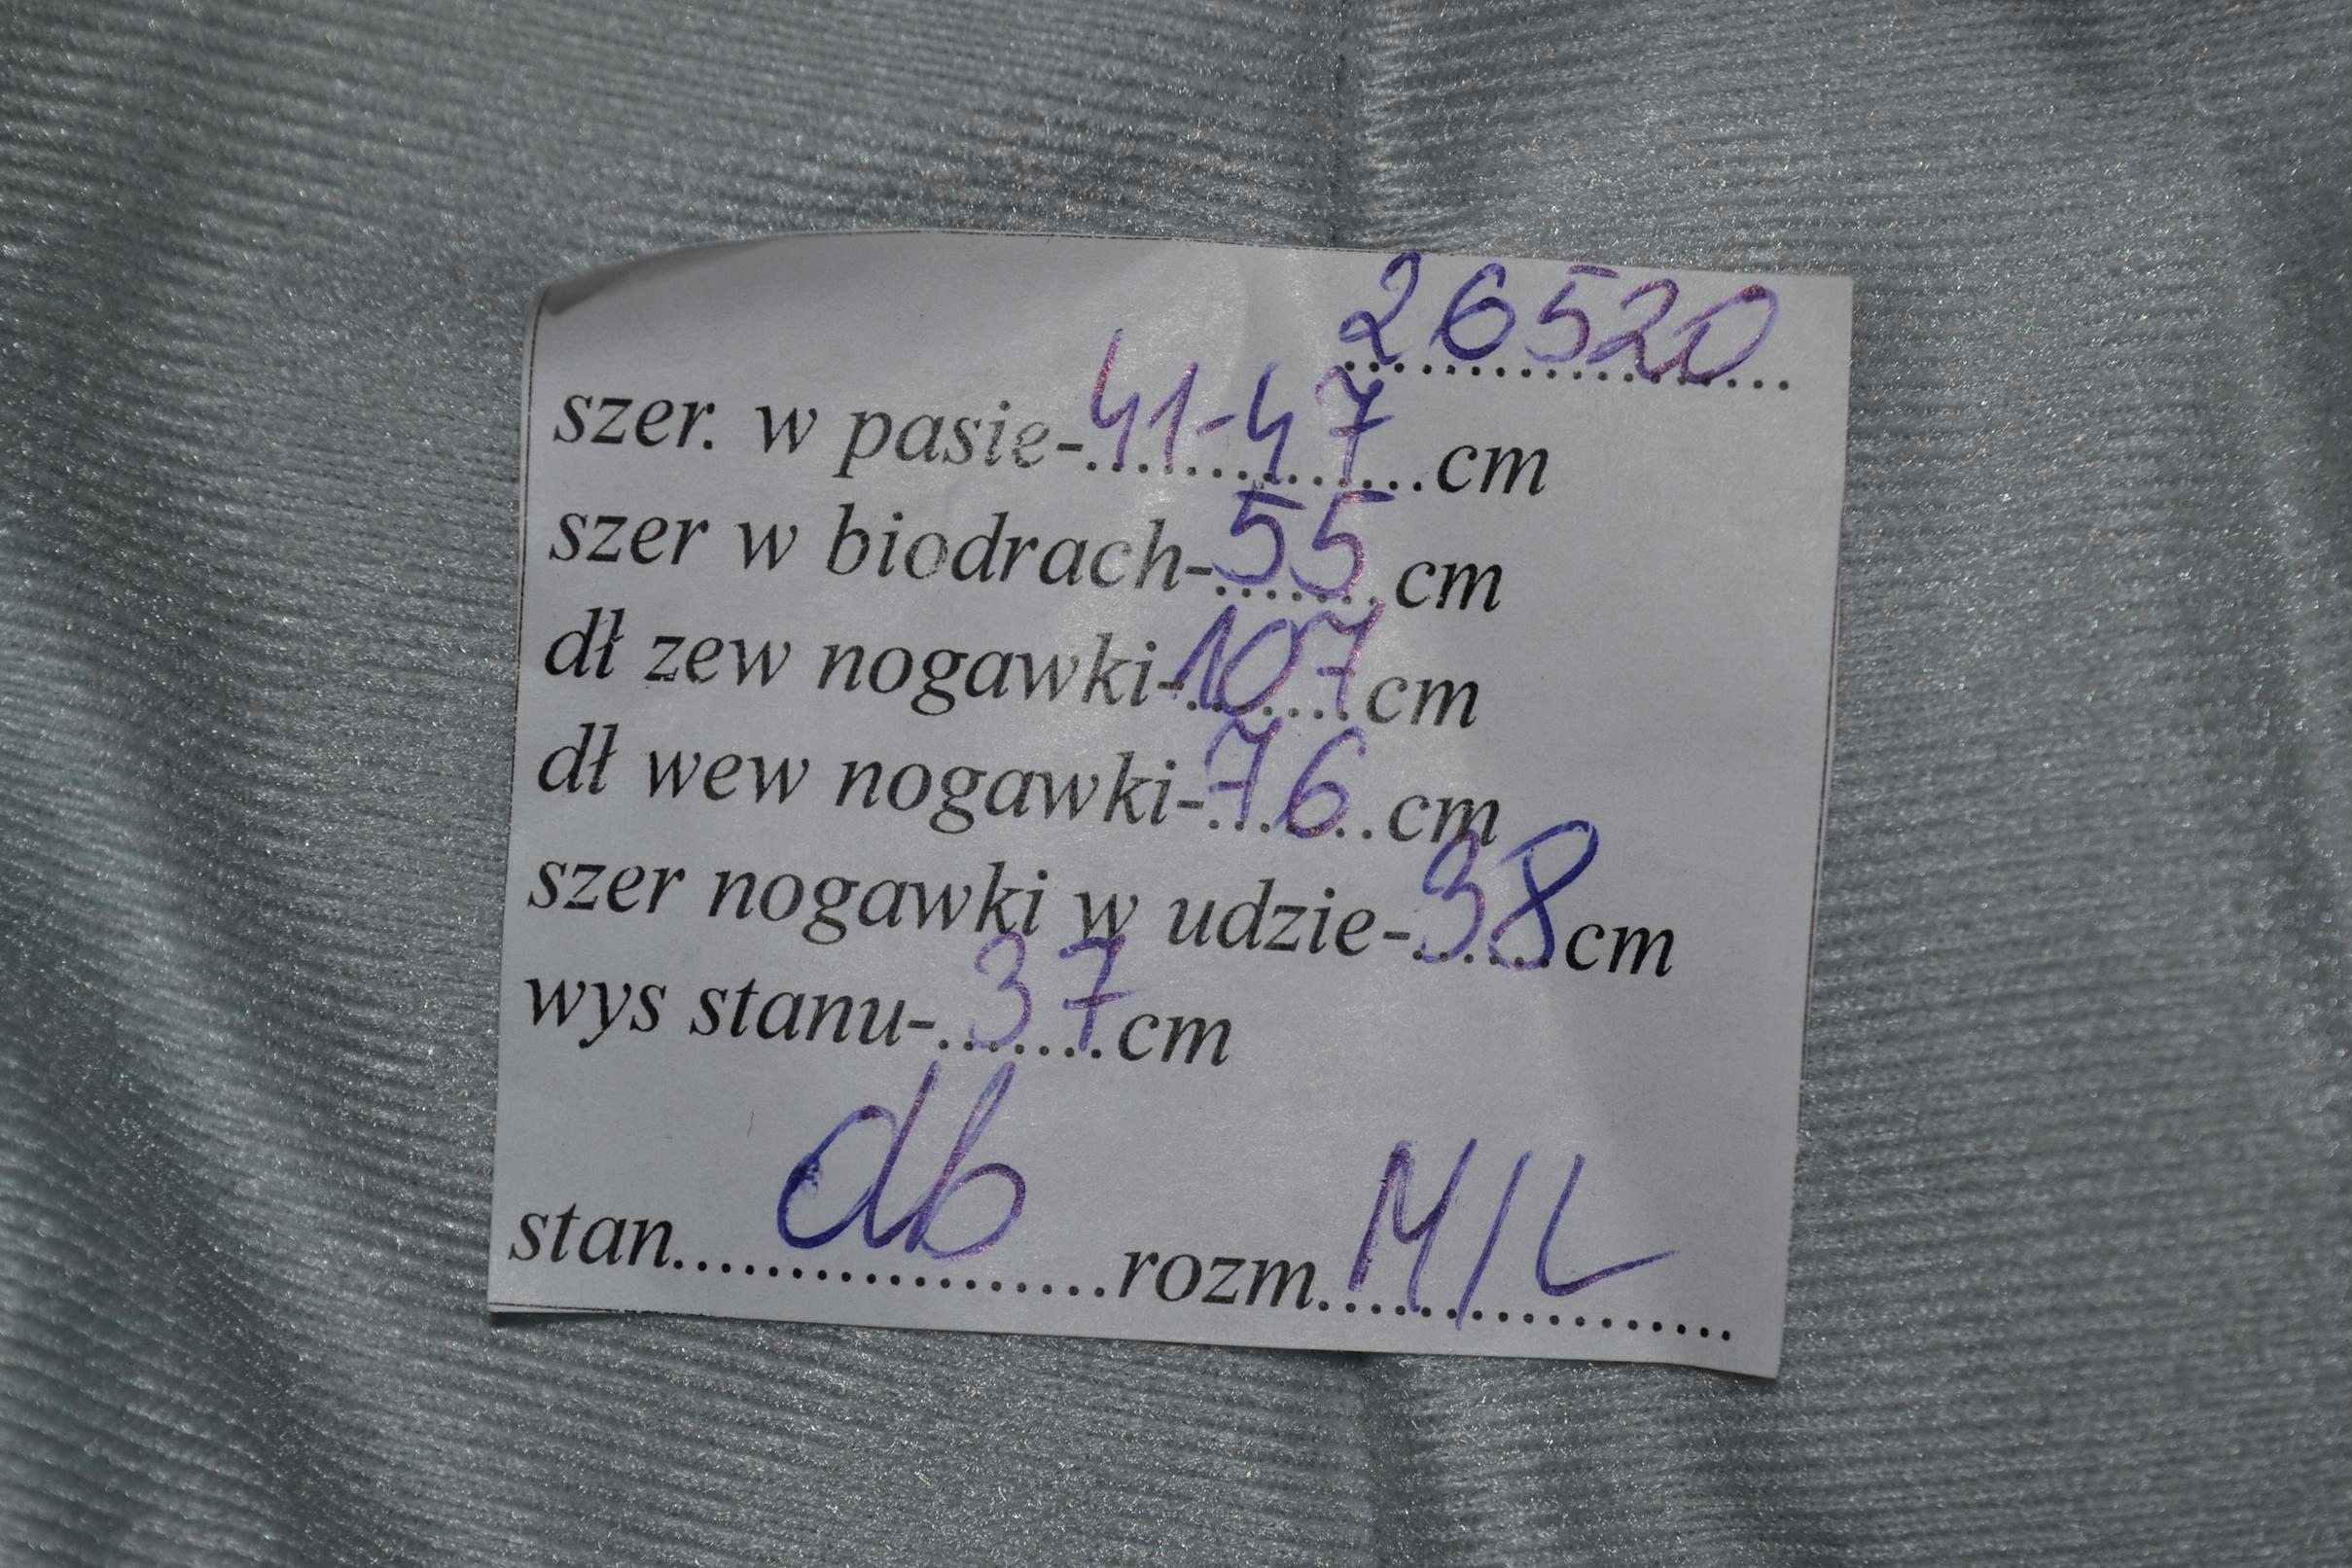 26520
szer. w pasie-41-47cm
szer w biodrach-55cm
dł zew nogawki-107cm
dł wew nogawki-76cm
szer nogawki w udzie-38cm
wys stanu-37cm
stan db rozm. M/L